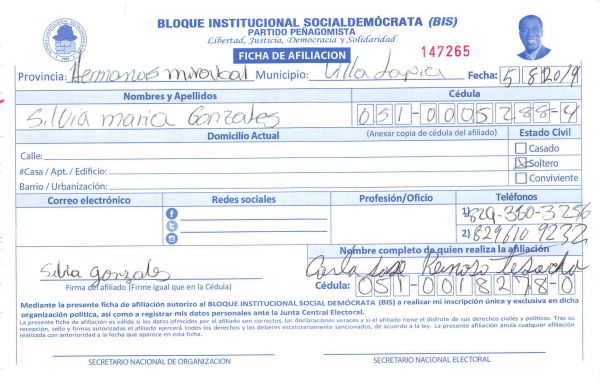 BLOQUE INSTITUCIONAL SOCIALDEMÓCRATA (BIS)
PARTIDO PEÑAGOMISTA
Libertad, Justicia, Democracia y Solidaridad
FICHA DE AFILIACION 147265
Provincia: Hermanas mirabal Municipio: Villa Tapia Fecha: 5/8/2019
Nombres y Apellidos Cédula
Silvia maria Gonzales 051-0005288-4
Domicilio Actual (Anexar copia de cédula del afiliado) Estado Civil
Calle: Casado
#Casa / Apt. / Edificio: Soltero
Barrio / Urbanización: Conviviente
Correo electrónico Redes sociales Profesión/Oficio Teléfonos
1) 829-360-3256
2) 829 610 9232
Nombre completo de quien realiza la afiliación
Silvia gonzales Reinoso
Firma del afiliado (Firme igual que en la Cédula) Cédula: 051-0018278-0
Mediante la presente ficha de afiliación autorizo al BLOQUE INSTITUCIONAL SOCIAL DEMÓCRATA (BIS) a realizar mi inscripción única y exclusiva en dicha
organización política, así como a registrar mis datos personales ante la Junta Central Electoral.
La presente ficha de afiliación es válida si los datos ofrecidos por el afiliado son correctos, las declaraciones veraces y si el afiliado tiene el disfrute de sus derechos civiles y políticos. Tras su
recepción, sello y firmas autorizadas el afiliado ejercerá todos los derechos y los deberes estatutariamente sancionados, de acuerdo a la ley. La presente afiliación anula cualquier afiliación
realizada con anterioridad a la fecha que aparece en esta ficha.
SECRETARIO NACIONAL DE ORGANIZACIÓN SECRETARIO NACIONAL ELECTORAL